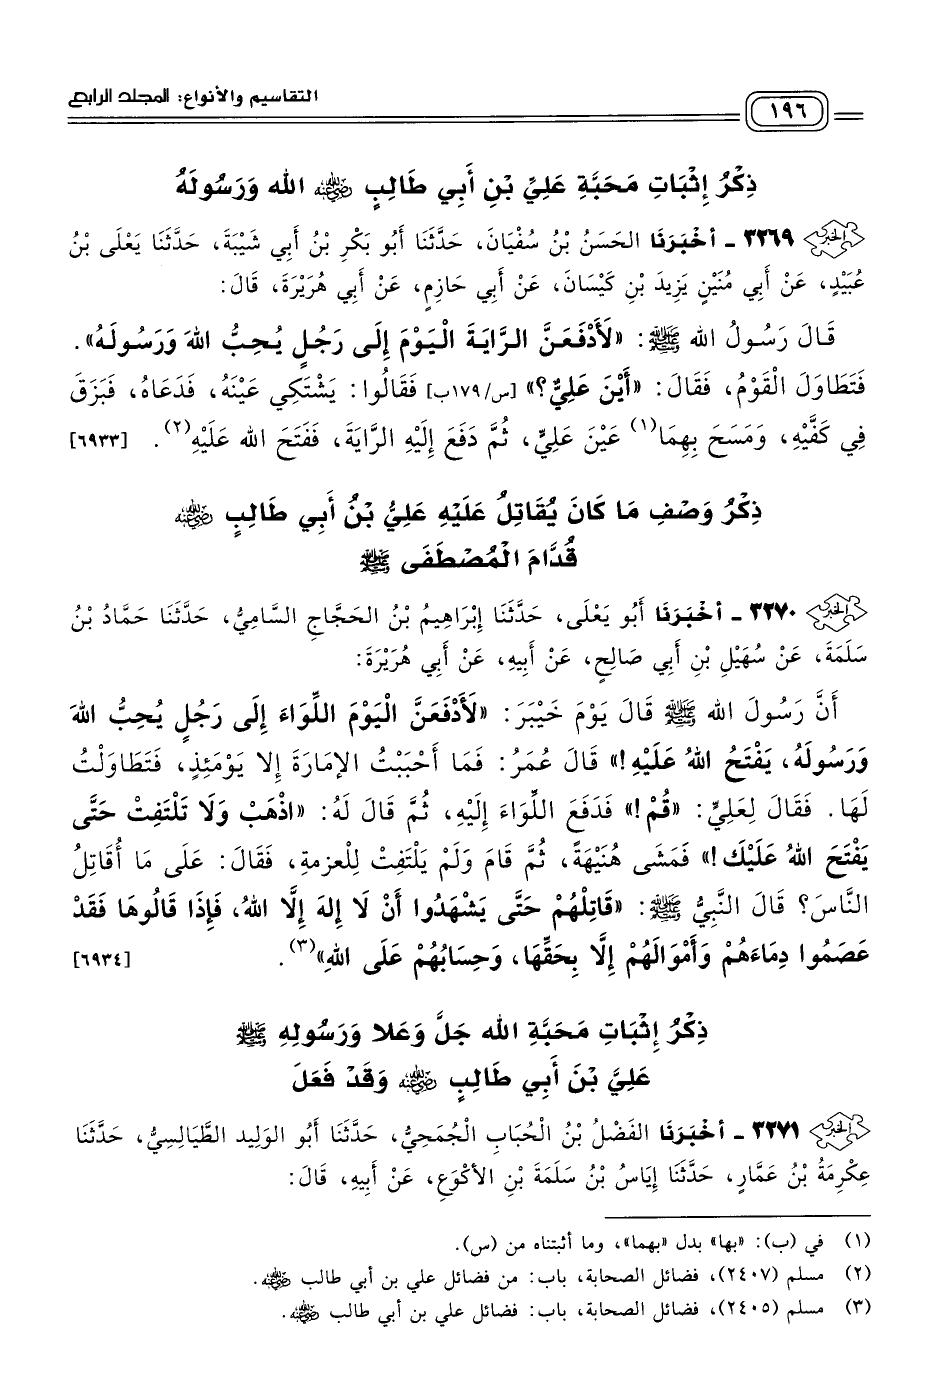 ١٩٦ التقاسيم والأنواع: المجلد الرابع
ذِكْرُ إِثْبَاتِ مَحَبَّةِ عَلِيِّ بْنِ أَبِي طَالِبٍ رضي الله عنه الله وَرَسُولَهُ
الخبر ٣٢٦٩ - أَخْبَرَنَا الحَسَنُ بْنُ سُفْيَانَ، حَدَّثَنَا أَبُو بَكْرِ بْنُ أَبِي شَيْبَةَ، حَدَّثَنَا يَعْلَى بْنُ
عُبَيْدٍ، عَنْ أَبِي مُنَيْنٍ يَزِيدَ بْنِ كَيْسَانَ، عَنْ أَبِي حَازِمٍ، عَنْ أَبِي هُرَيْرَةَ، قَالَ:
قَالَ رَسُولُ الله ﷺ: «لَأَدْفَعَنَّ الرَّايَةَ الْيَوْمَ إِلَى رَجُلٍ يُحِبُّ اللهَ وَرَسُولَهُ».
فَتَطَاوَلَ الْقَوْمُ، فَقَالَ: «أَيْنَ عَلِيٌّ؟» [س/١٧٩ب] فَقَالُوا: يَشْتَكِي عَيْنَهُ، فَدَعَاهُ، فَبَزَقَ
فِي كَفَّيْهِ، وَمَسَحَ بِهِمَا(١) عَيْنَ عَلِيٍّ، ثُمَّ دَفَعَ إِلَيْهِ الرَّايَةَ، فَفَتَحَ الله عَلَيْهِ(٢). [٦٩٣٣]
ذِكْرُ وَصْفِ مَا كَانَ يُقَاتِلُ عَلَيْهِ عَلِيُّ بْنُ أَبِي طَالِبٍ رضي الله عنه
قُدَّامَ الْمُصْطَفَى ﷺ
الخبر ٣٢٧٠ - أَخْبَرَنَا أَبُو يَعْلَى، حَدَّثَنَا إِبْرَاهِيمُ بْنُ الحَجَّاجِ السَّامِيُّ، حَدَّثَنَا حَمَّادُ بْنُ
سَلَمَةَ، عَنْ سُهَيْلِ بْنِ أَبِي صَالِحٍ، عَنْ أَبِيهِ، عَنْ أَبِي هُرَيْرَةَ:
أَنَّ رَسُولَ الله ﷺ قَالَ يَوْمَ خَيْبَرَ: «لَأَدْفَعَنَّ الْيَوْمَ اللِّوَاءَ إِلَى رَجُلٍ يُحِبُّ اللهَ
وَرَسُولَهُ، يَفْتَحُ اللهُ عَلَيْهِ!» قَالَ عُمَرُ: فَمَا أَحْبَبْتُ الإِمَارَةَ إِلا يَوْمَئِذٍ، فَتَطَاوَلْتُ
لَهَا. فَقَالَ لِعَلِيٍّ: «قُمْ!» فَدَفَعَ اللِّوَاءَ إِلَيْهِ، ثُمَّ قَالَ لَهُ: «اذْهَبْ وَلَا تَلْتَفِتْ حَتَّى
يَفْتَحَ اللهُ عَلَيْكَ!» فَمَشَى هُنَيْهَةً، ثُمَّ قَامَ وَلَمْ يَلْتَفِتْ لِلْعزمةِ، فَقَالَ: عَلَى مَا أُقَاتِلُ
النَّاسَ؟ قَالَ النَّبِيُّ ﷺ: «قَاتِلْهُمْ حَتَّى يَشْهَدُوا أَنْ لَا إِلهَ إِلَّا اللهُ، فَإِذَا قَالُوهَا فَقَدْ
عَصَمُوا دِمَاءَهُمْ وَأَمْوَالَهُمْ إِلَّا بِحَقِّهَا، وَحِسَابُهُمْ عَلَى اللهِ»(٣). [٦٩٣٤]
ذِكْرُ إِثْبَاتِ مَحَبَّةِ الله جَلَّ وَعَلا وَرَسُولِهِ ﷺ
عَلِيَّ بْنَ أَبِي طَالِبٍ رضي الله عنه وَقَدْ فَعَلَ
الخبر ٣٢٧١ - أَخْبَرَنَا الفَضْلُ بْنُ الْحُبَابِ الْجُمَحِيُّ، حَدَّثَنَا أَبُو الوَلِيدِ الطَّيَالِسِيُّ، حَدَّثَنَا
عِكْرِمَةُ بْنُ عَمَّارٍ، حَدَّثَنَا إِيَاسُ بْنُ سَلَمَةَ بْنِ الأَكْوَعِ، عَنْ أَبِيهِ، قَالَ:
(١) في (ب): «بها» بدل «بهما»، وما أثبتناه من (س).
(٢) مسلم (٢٤٠٧)، فضائل الصحابة، باب: من فضائل علي بن أبي طالب رضي الله عنه.
(٣) مسلم (٢٤٠٥)، فضائل الصحابة، باب: فضائل علي بن أبي طالب رضي الله عنه.